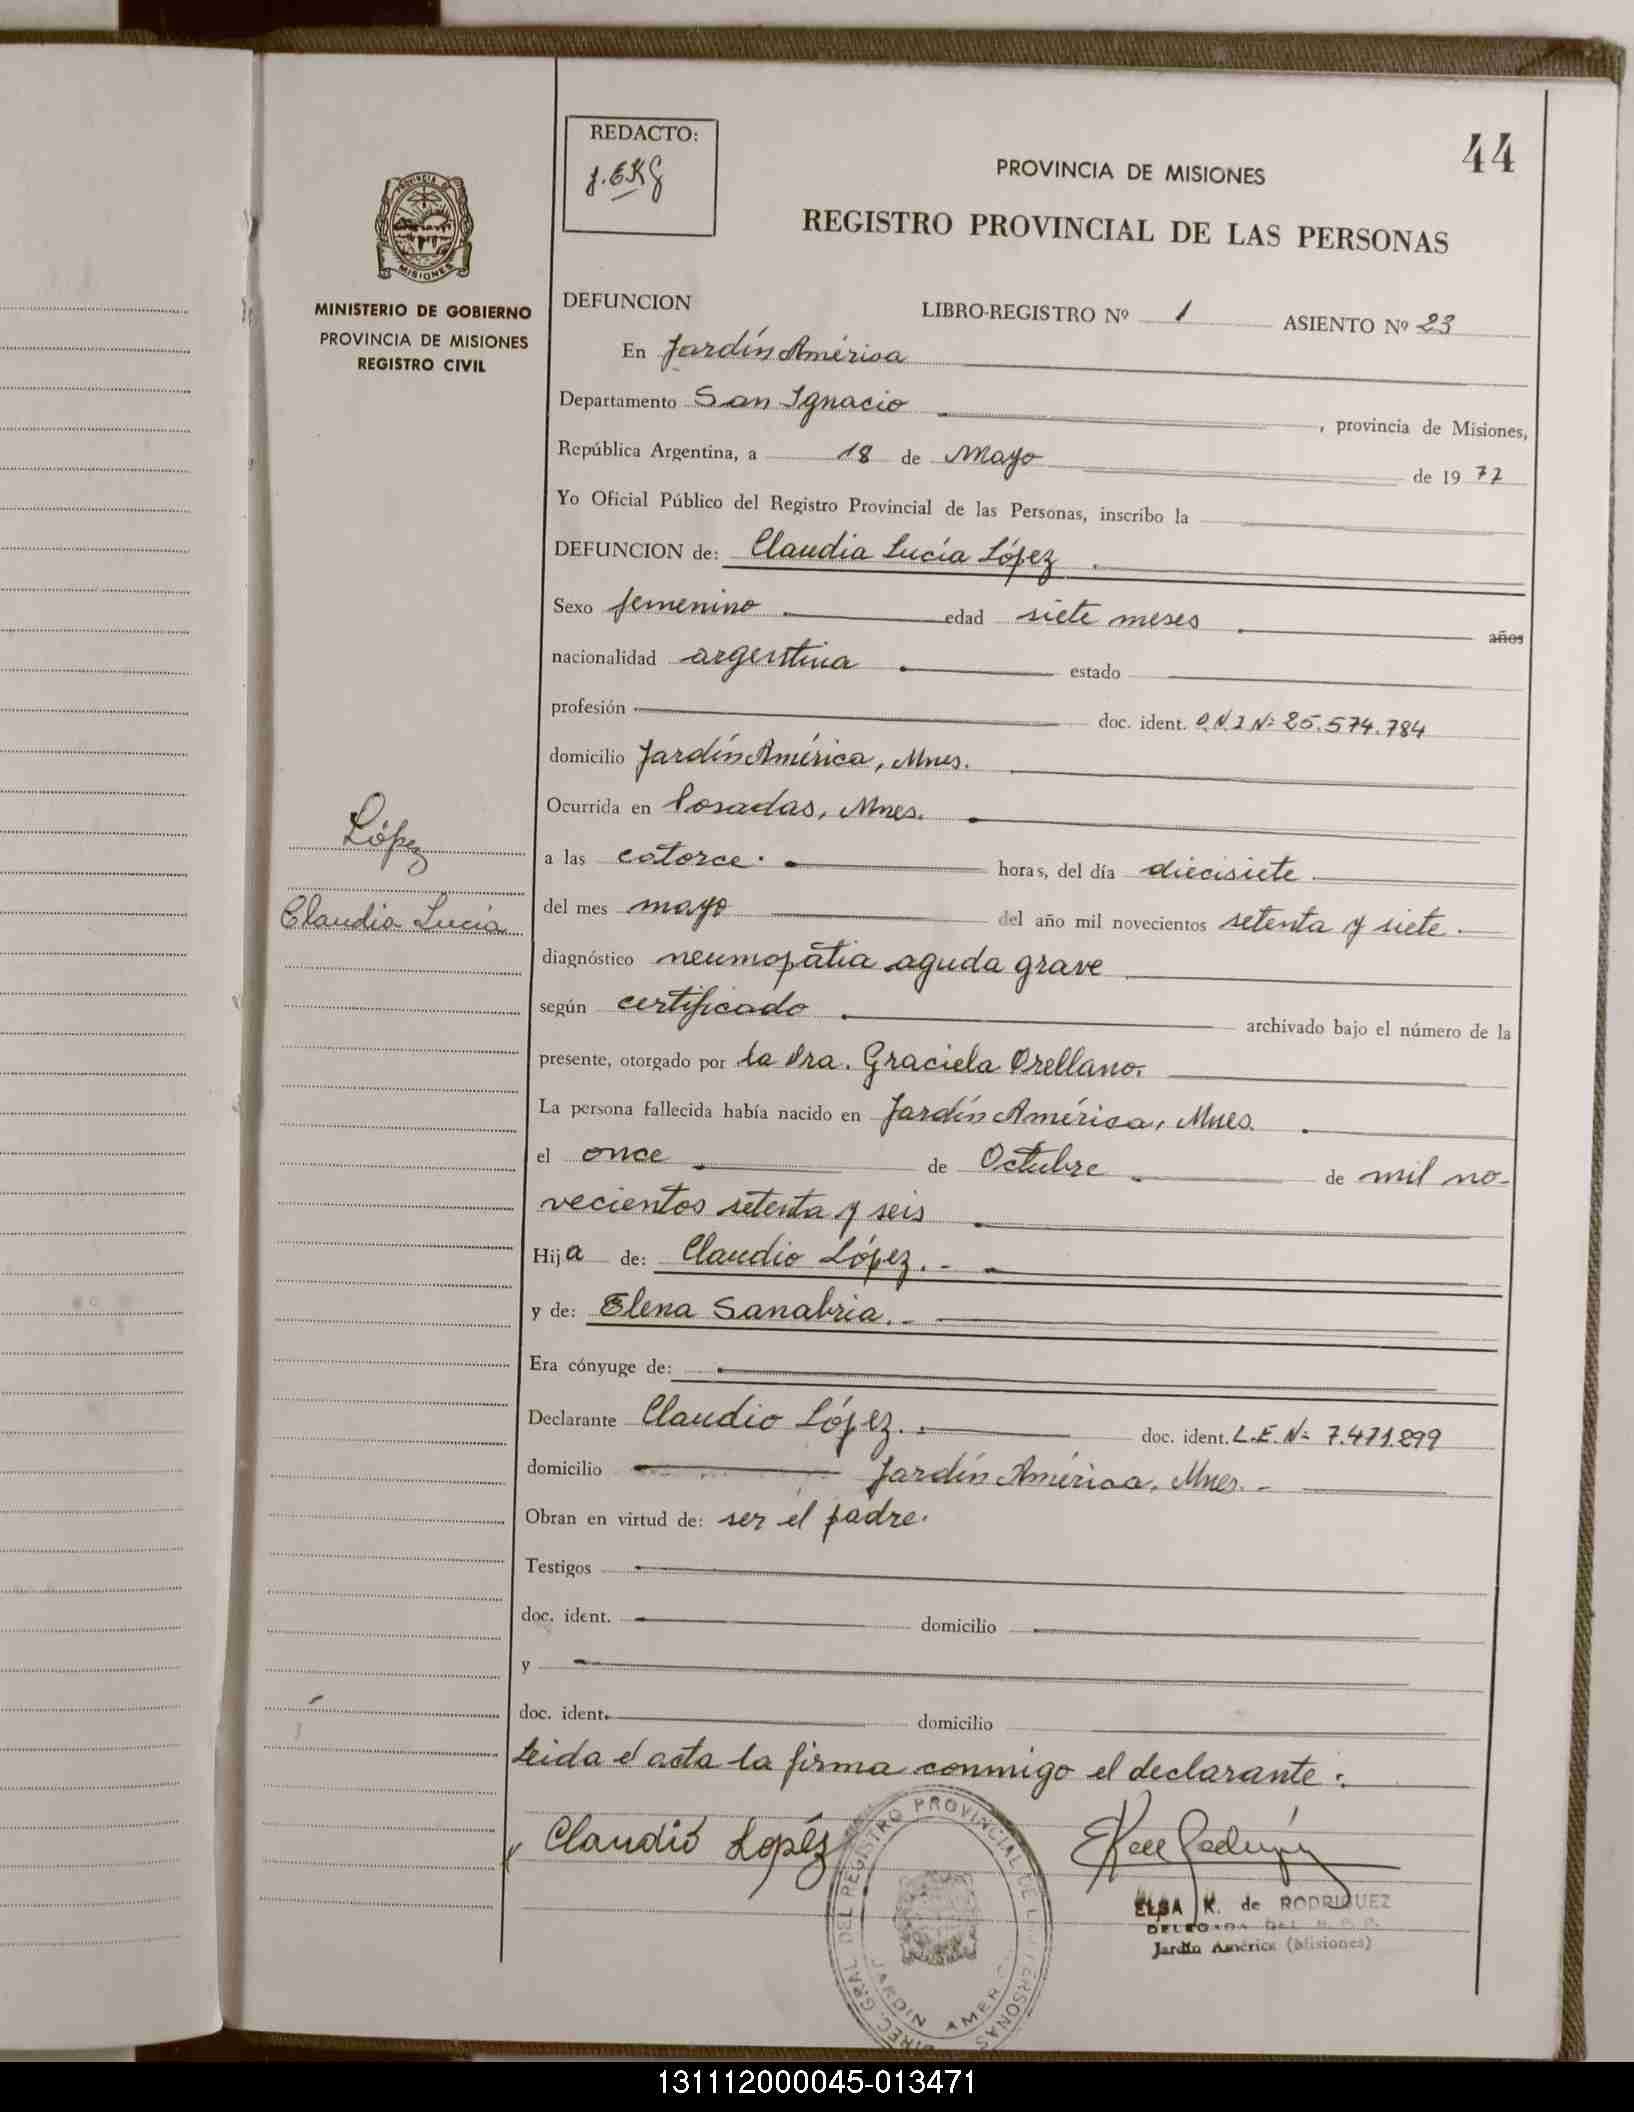 REDACTO:
J.EKG
44
PROVINCIA DE MISIONES
REGISTRO PROVINCIAL DE LAS PERSONAS
PROVINCIA DE
MISIONES
MINISTERIO DE GOBIERNO
PROVINCIA DE MISIONES
REGISTRO CIVIL
DEFUNCION LIBRO-REGISTRO Nº 1 ASIENTO Nº 23
En Jardín América
Departamento San Ignacio , provincia de Misiones,
República Argentina, a 18 de Mayo de 1977
Yo Oficial Público del Registro Provincial de las Personas, inscribo la
DEFUNCION de: Claudia Lucía López
Sexo femenino edad siete meses años
nacionalidad argentina estado
profesión doc. ident. D.N.I Nº 25.574.784
domicilio Jardín América, Mnes.
Ocurrida en Posadas, Mnes.
a las catorce. horas, del día diecisiete
del mes mayo del año mil novecientos setenta y siete.
diagnóstico neumopatia aguda grave
según certificado archivado bajo el número de la
presente, otorgado por la Dra. Graciela Orellano.
La persona fallecida había nacido en Jardín América, Mnes.
el once de Octubre de mil no-
vecientos setenta y seis
Hija de: Claudio López.-
y de: Elena Sanabria.-
Era cónyuge de:
Declarante Claudio López. doc. ident. L.E.Nº 7.471.899
domicilio Jardín América, Mnes.-
Obran en virtud de: ser el padre.
Testigos
doc. ident. domicilio
y
doc. ident. domicilio
Leida el acta la firma conmigo el declarante.
López
Claudia Lucía
Claudió Lopéz
ELSA K. de RODRIGUEZ
DELEGADA DEL R.P.P.
Jardín América (Misiones)
DIREC. GRAL. DEL REGISTRO PROVINCIAL DE LAS PERSONAS
JARDIN AMERICA
131112000045-013471